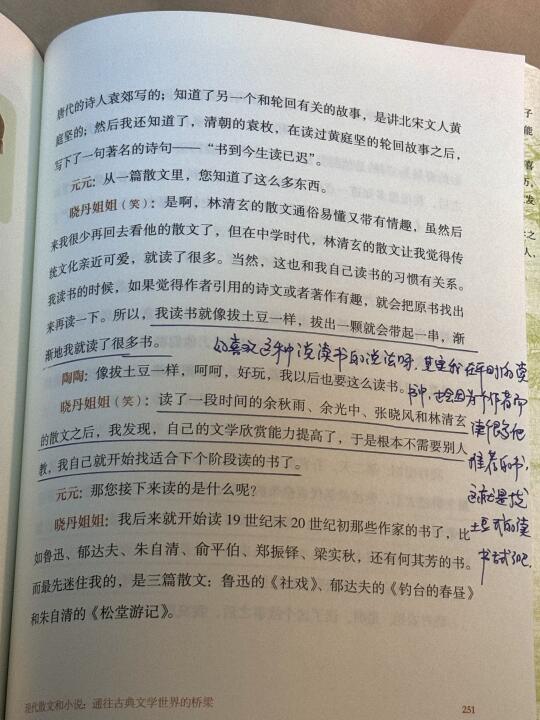 唐代的诗人袁郊写的；知道了另一个和轮回有关的故事，是讲北宋文人黄
庭坚的；然后我还知道了，清朝的袁枚，在读过黄庭坚的轮回故事之后，
写下了一句著名的诗句——“书到今生读已迟”。
元元：从一篇散文里，您知道了这么多东西。
晓丹姐姐（笑）：是啊，林清玄的散文通俗易懂又带有情趣，虽然后
来我很少再回去看他的散文了，但在中学时代，林清玄的散文让我觉得传
统文化亲近可爱，就读了很多。当然，这也和我自己读书的习惯有关系。
我读书的时候，如果觉得作者引用的诗文或者著作有趣，就会把原书找出
来再读一下。所以，我读书就像拔土豆一样，拔出一颗就会带起一串，渐
渐地我就读了很多书。
喜欢这种说读书的说法呀，其实我在平时的读
陶陶：像拔土豆一样，呵呵，好玩，我以后也要这么读书。
书中，也会因为个作者而
晓丹姐姐（笑）：读了一段时间的余秋雨、余光中、张晓风和林清玄
读很多他
的散文之后，我发现，自己的文学欣赏能力提高了，于是根本不需要别人
推荐的书，
教，我自己就开始找适合下个阶段读的书了。
这就是拔
元元：那您接下来读的是什么呢？
土豆式的读
晓丹姐姐：我后来就开始读 19 世纪末 20 世纪初那些作家的书了，比
书方式了吧。
如鲁迅、郁达夫、朱自清、俞平伯、郑振铎、梁实秋，还有何其芳的书。
而最先迷住我的，是三篇散文：鲁迅的《社戏》、郁达夫的《钓台的春昼》
和朱自清的《松堂游记》。
现代散文和小说：通往古典文学世界的桥梁
251